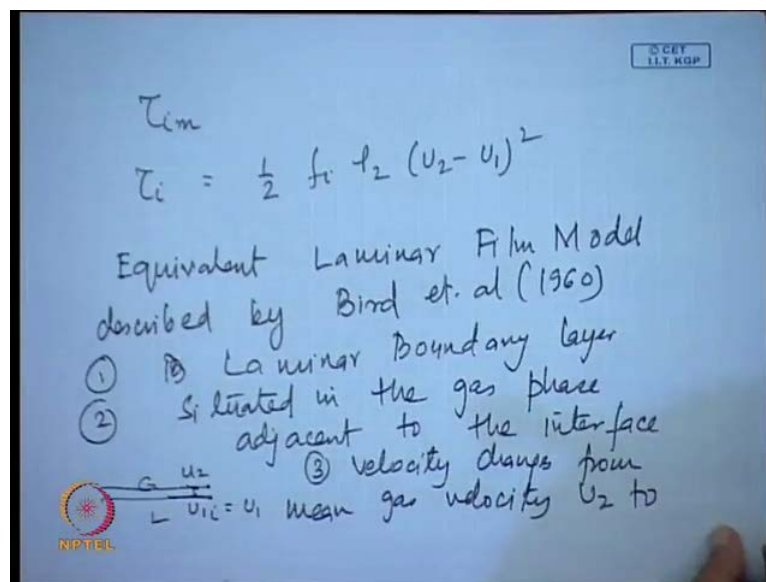 © CET
I.I.T. KGP
τim
τi = 1/2 fi ρ2 (U2 - U1)^2
Equivalent Laminar Film Model
described by Bird et. al (1960)
① Laminar Boundary layer
② Situated in the gas phase
adjacent to the interface
③ velocity changes from
G U2
L U1i = U1 mean gas velocity U2 to
NPTEL